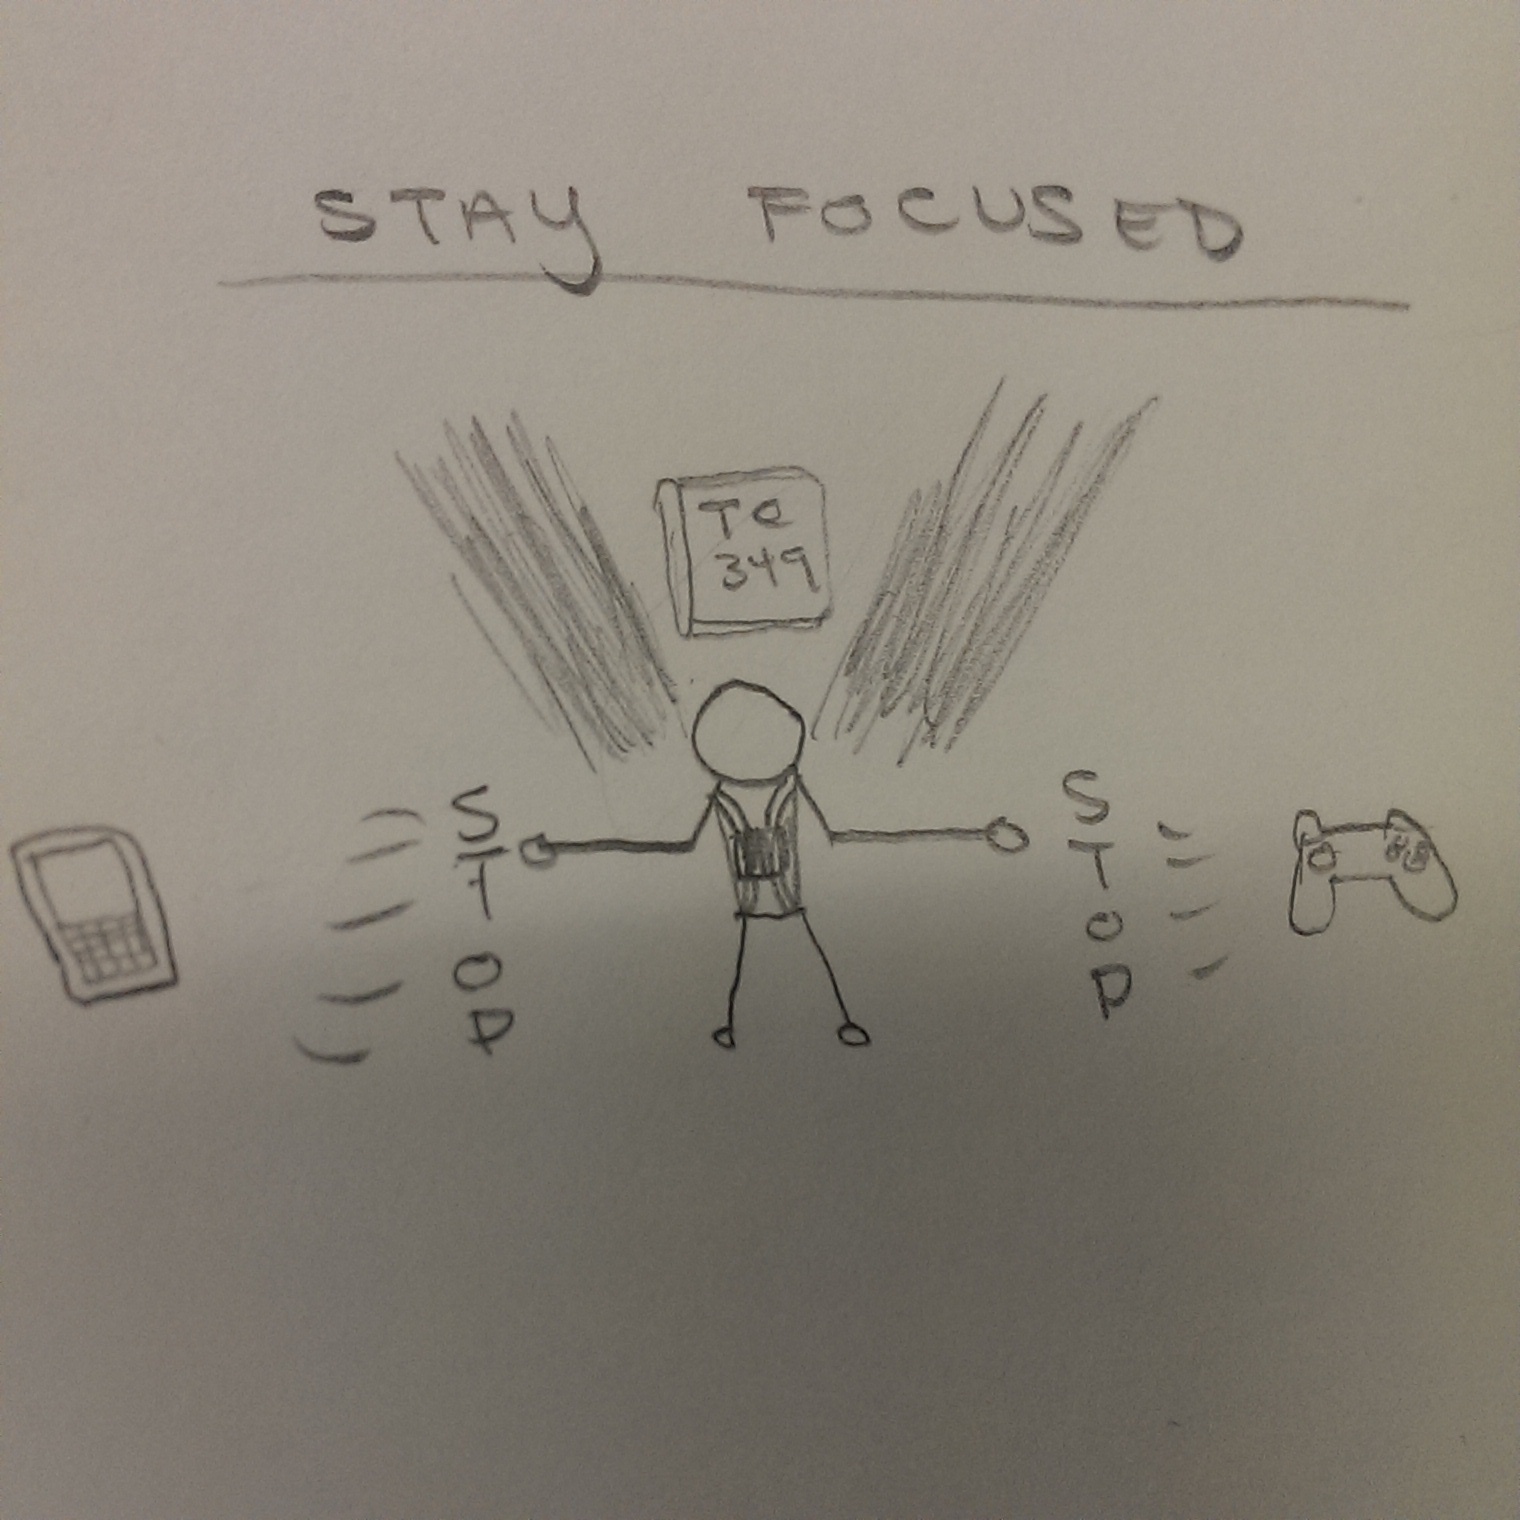 STAY FOCUSED
TC
349
STOP
STOP